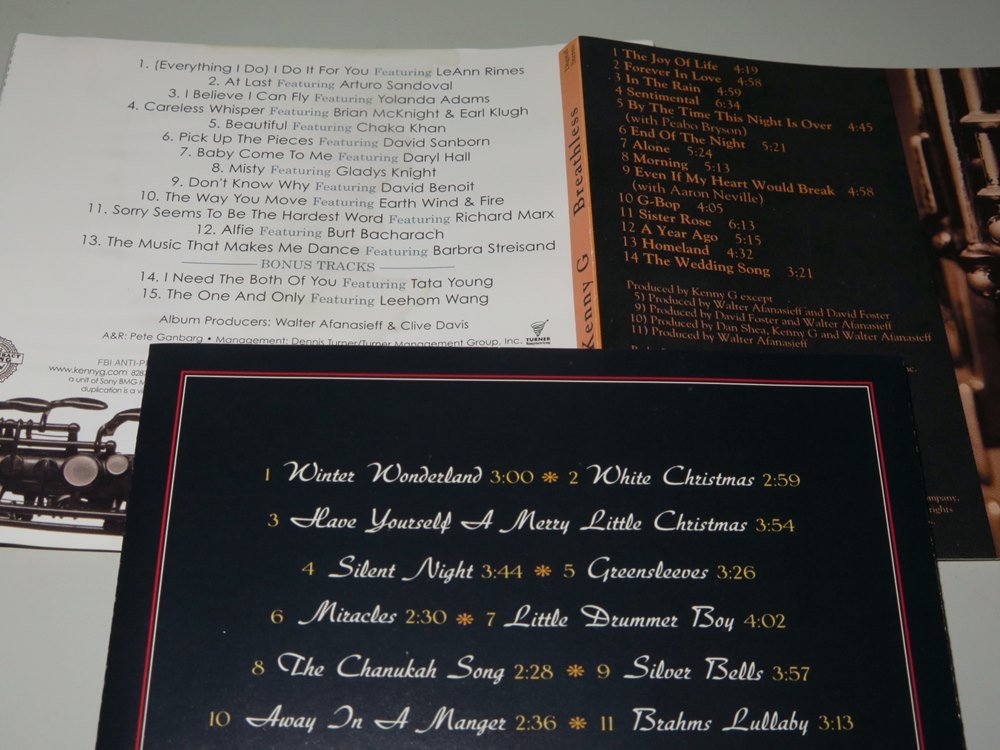 1. (Everything I Do) I Do It For You Featuring LeAnn Rimes
2. At Last Featuring Arturo Sandoval
3. I Believe I Can Fly Featuring Yolanda Adams
4. Careless Whisper Featuring Brian McKnight & Earl Klugh
5. Beautiful Featuring Chaka Khan
6. Pick Up The Pieces Featuring David Sanborn
7. Baby Come To Me Featuring Daryl Hall
8. Misty Featuring Gladys Knight
9. Don't Know Why Featuring David Benoit
10. The Way You Move Featuring Earth Wind & Fire
11. Sorry Seems To Be The Hardest Word Featuring Richard Marx
12. Alfie Featuring Burt Bacharach
13. The Music That Makes Me Dance Featuring Barbra Streisand
BONUS TRACKS
14. I Need The Both Of You Featuring Tata Young
15. The One And Only Featuring Leehom Wang
Album Producers: Walter Afanasieff & Clive Davis
A&R: Pete Ganbarg • Management: Dennis Turner/Turner Management Group, Inc.
TURNER
FBI ANTI-P
www.kennyg.com
a unit of Sony BMG M
duplication is a
Kenny G Breathless
1 The Joy Of Life 4:19
2 Forever In Love 4:58
3 In The Rain 4:59
4 Sentimental 6:34
5 By The Time This Night Is Over 4:45
(with Peabo Bryson)
6 End Of The Night 5:21
7 Alone 5:24
8 Morning 5:13
9 Even If My Heart Would Break 4:58
(with Aaron Neville)
10 G-Bop 4:05
11 Sister Rose 6:13
12 A Year Ago 5:15
13 Homeland 4:32
14 The Wedding Song 3:21
Produced by Kenny G except
5) Produced by Walter Afanasieff and David Foster
9) Produced by David Foster and Walter Afanasieff
10) Produced by Dan Shea, Kenny G and Walter Afanasieff
11) Produced by Walter Afanasieff
1 Winter Wonderland 3:00 2 White Christmas 2:59
3 Have Yourself A Merry Little Christmas 3:54
4 Silent Night 3:44 5 Greensleeves 3:26
6 Miracles 2:30 7 Little Drummer Boy 4:02
8 The Chanukah Song 2:28 9 Silver Bells 3:57
10 Away In A Manger 2:36 11 Brahms Lullaby 3:13